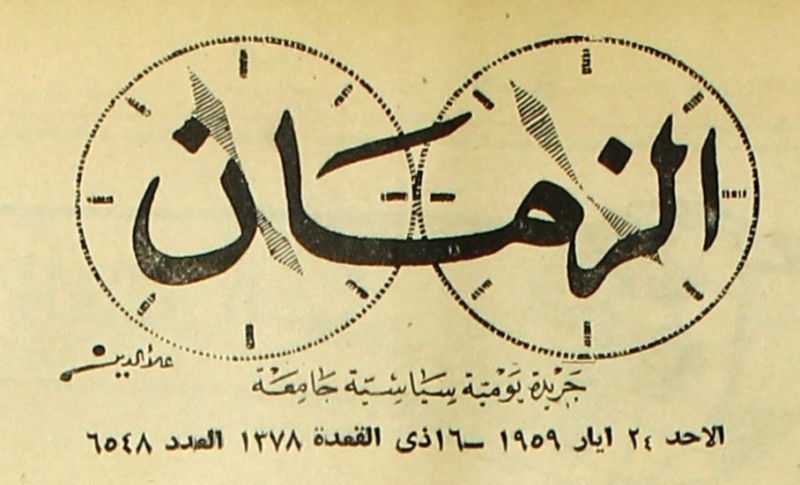 الزمان
علاءالدين
جَريدة يَوميّة سِيَاسِيّة جَامِعَة
الاحد ٢٤ ايار ١٩٥٩ –١٦ ذى القعدة ١٣٧٨ العدد ٦٥٤٨